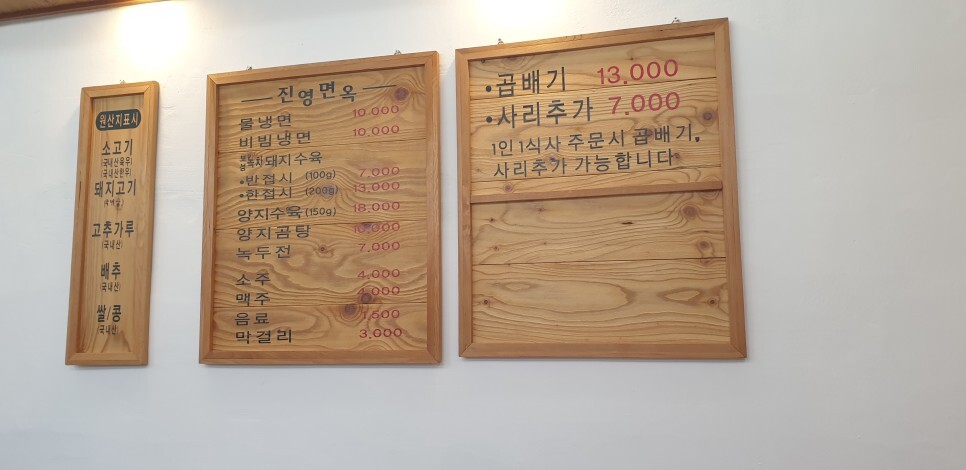 원산지표시
소고기
(국내산육우)
(국내산한우)
돼지고기
고추가루
(국내산)
배추
(국내산)
쌀/콩
(국내산)
진영면옥
물냉면 10.000
비빔냉면 10.000
보성녹차돼지수육
•반접시 (100g) 7.000
•한접시 (200g) 13.000
양지수육(150g) 18.000
양지곰탕
녹두전 7.000
소주 4.000
맥주
음료 1.500
막걸리 3.000
•곱배기 13.000
•사리추가 7.000
1인 1식사 주문시 곱배기,
사리추가 가능합니다